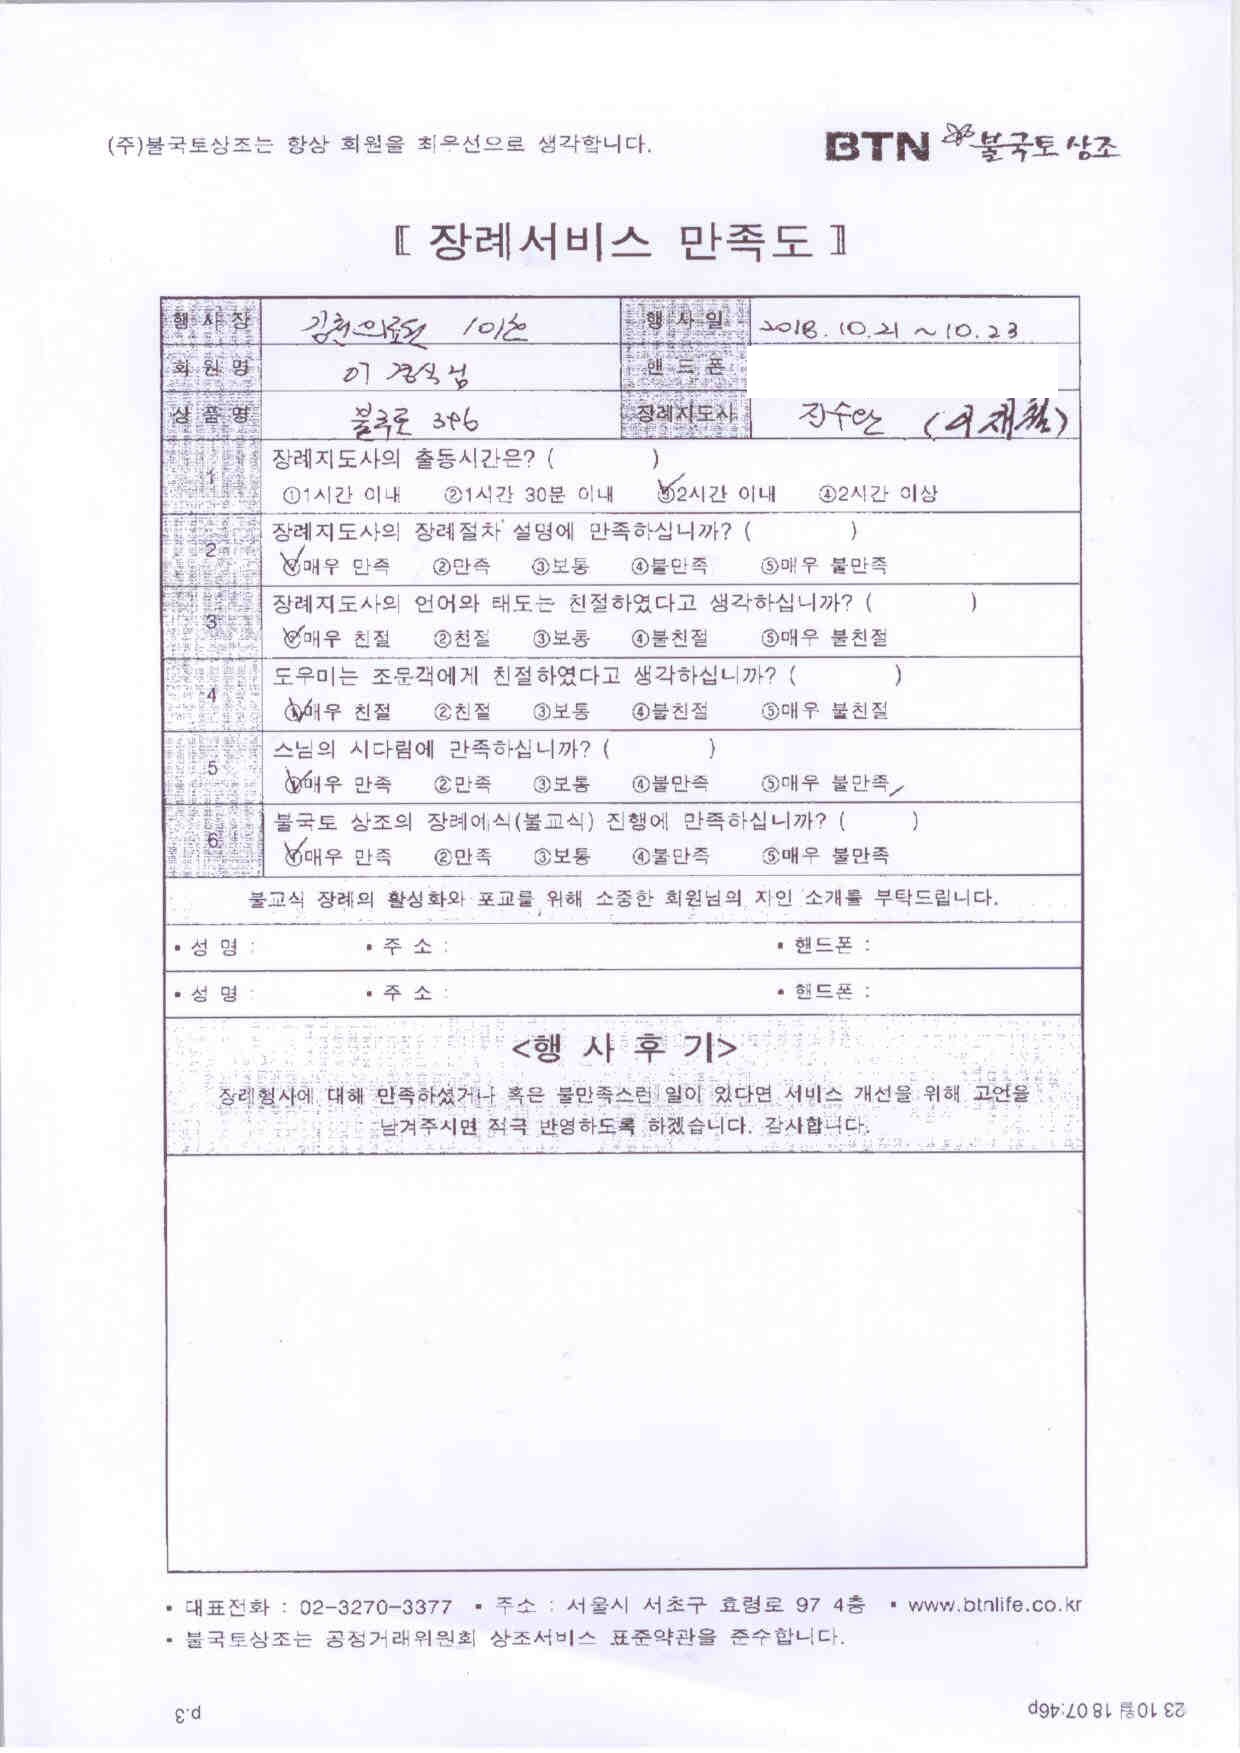 (주)불국토상조는 항상 회원을 최우선으로 생각합니다.
BTN 불국토 상조
〖 장례서비스 만족도 〗
행 사 장 김천의료원 101호 행 사 일 2018. 10. 21 ~ 10. 23
회 원 명 이 경식 님 핸 드 폰
상 품 명 불국토 396 장례지도사
1 장례지도사의 출동시간은? ( )
①1시간 이내 ②1시간 30분 이내 ③2시간 이내 ④2시간 이상
2 장례지도사의 장례절차 설명에 만족하십니까? ( )
①매우 만족 ②만족 ③보통 ④불만족 ⑤매우 불만족
3 장례지도사의 언어와 태도는 친절하였다고 생각하십니까? ( )
①매우 친절 ②친절 ③보통 ④불친절 ⑤매우 불친절
4 도우미는 조문객에게 친절하였다고 생각하십니까? ( )
①매우 친절 ②친절 ③보통 ④불친절 ⑤매우 불친절
5 스님의 시다림에 만족하십니까? ( )
①매우 만족 ②만족 ③보통 ④불만족 ⑤매우 불만족
6 불국토 상조의 장례예식(불교식) 진행에 만족하십니까? ( )
①매우 만족 ②만족 ③보통 ④불만족 ⑤매우 불만족
불교식 장례의 활성화와 포교를 위해 소중한 회원님의 지인 소개를 부탁드립니다.
▪ 성 명 : ▪ 주 소 : ▪ 핸드폰 :
▪ 성 명 : ▪ 주 소 : ▪ 핸드폰 :
<행 사 후 기>
장례행사에 대해 만족하셨거나 혹은 불만족스런 일이 있다면 서비스 개선을 위해 고언을
남겨주시면 적극 반영하도록 하겠습니다. 감사합니다.
▪ 대표전화 : 02-3270-3377 ▪ 주소 : 서울시 서초구 효령로 97 4층 ▪ www.btnlife.co.kr
▪ 불국토상조는 공정거래위원회 상조서비스 표준약관을 준수합니다.
23 10월 18 07:46p p.3